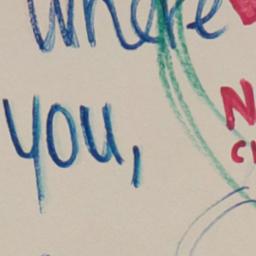 where
you,